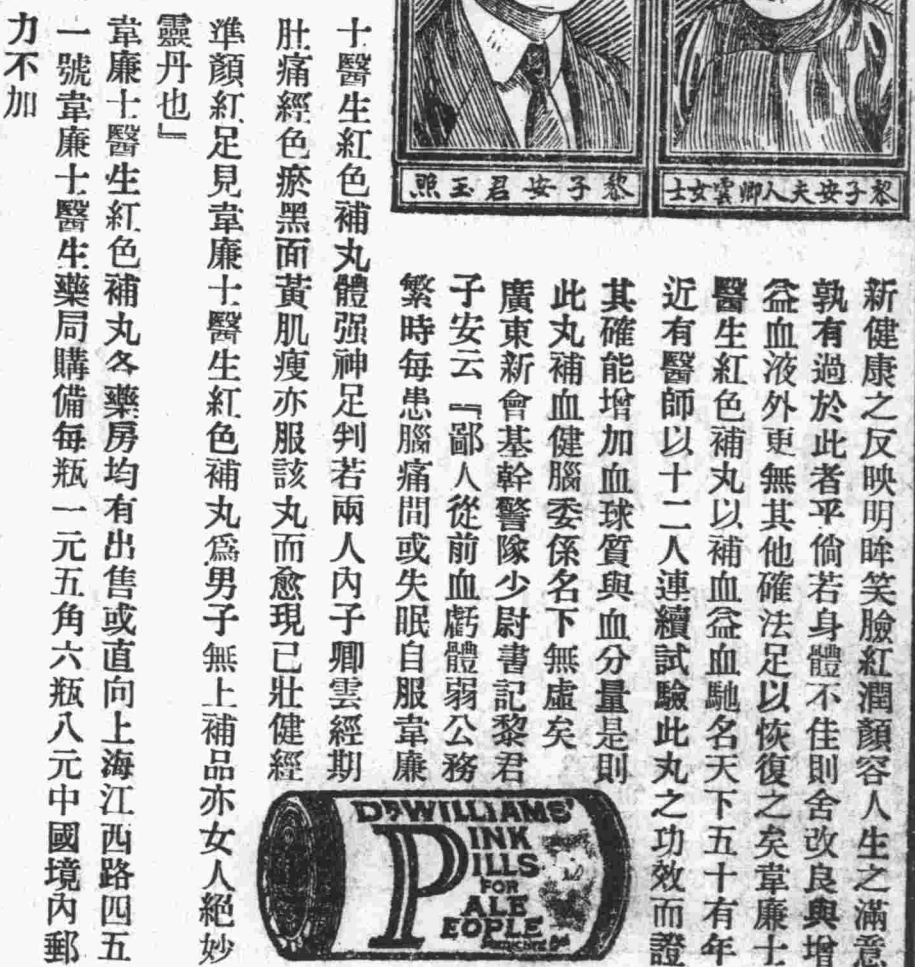 黎子安夫人卿雲女士
黎子安君玉照
新健康之反映明眸笑臉紅潤顏容人生之滿意
孰有過於此者乎倘若身體不佳則舍改良與增
益血液外更無其他確法足以恢復之矣韋廉士
醫生紅色補丸以補血益血馳名天下五十有年
近有醫師以十二人連續試驗此丸之功效而證
其確能增加血球質與血分量是則
此丸補血健腦委係名下無虛矣
廣東新會基幹警隊少尉書記黎君
子安云『鄙人從前血虧體弱公務
繁時每患腦痛間或失眠自服韋廉
十醫生紅色補丸體强神足判若兩人內子卿雲經期
肚痛經色瘀黑面黃肌瘦亦服該丸而愈現已壯健經
準顏紅足見韋廉士醫生紅色補丸爲男子無上補品亦女人絕妙
靈丹也』
韋廉士醫生紅色補丸各藥房均有出售或直向上海江西路四五
一號韋廉士醫生藥局購備每瓶一元五角六瓶八元中國境內郵
力不加
DR WILLIAMS'
PINK
PILLS
FOR
PALE
PEOPLE